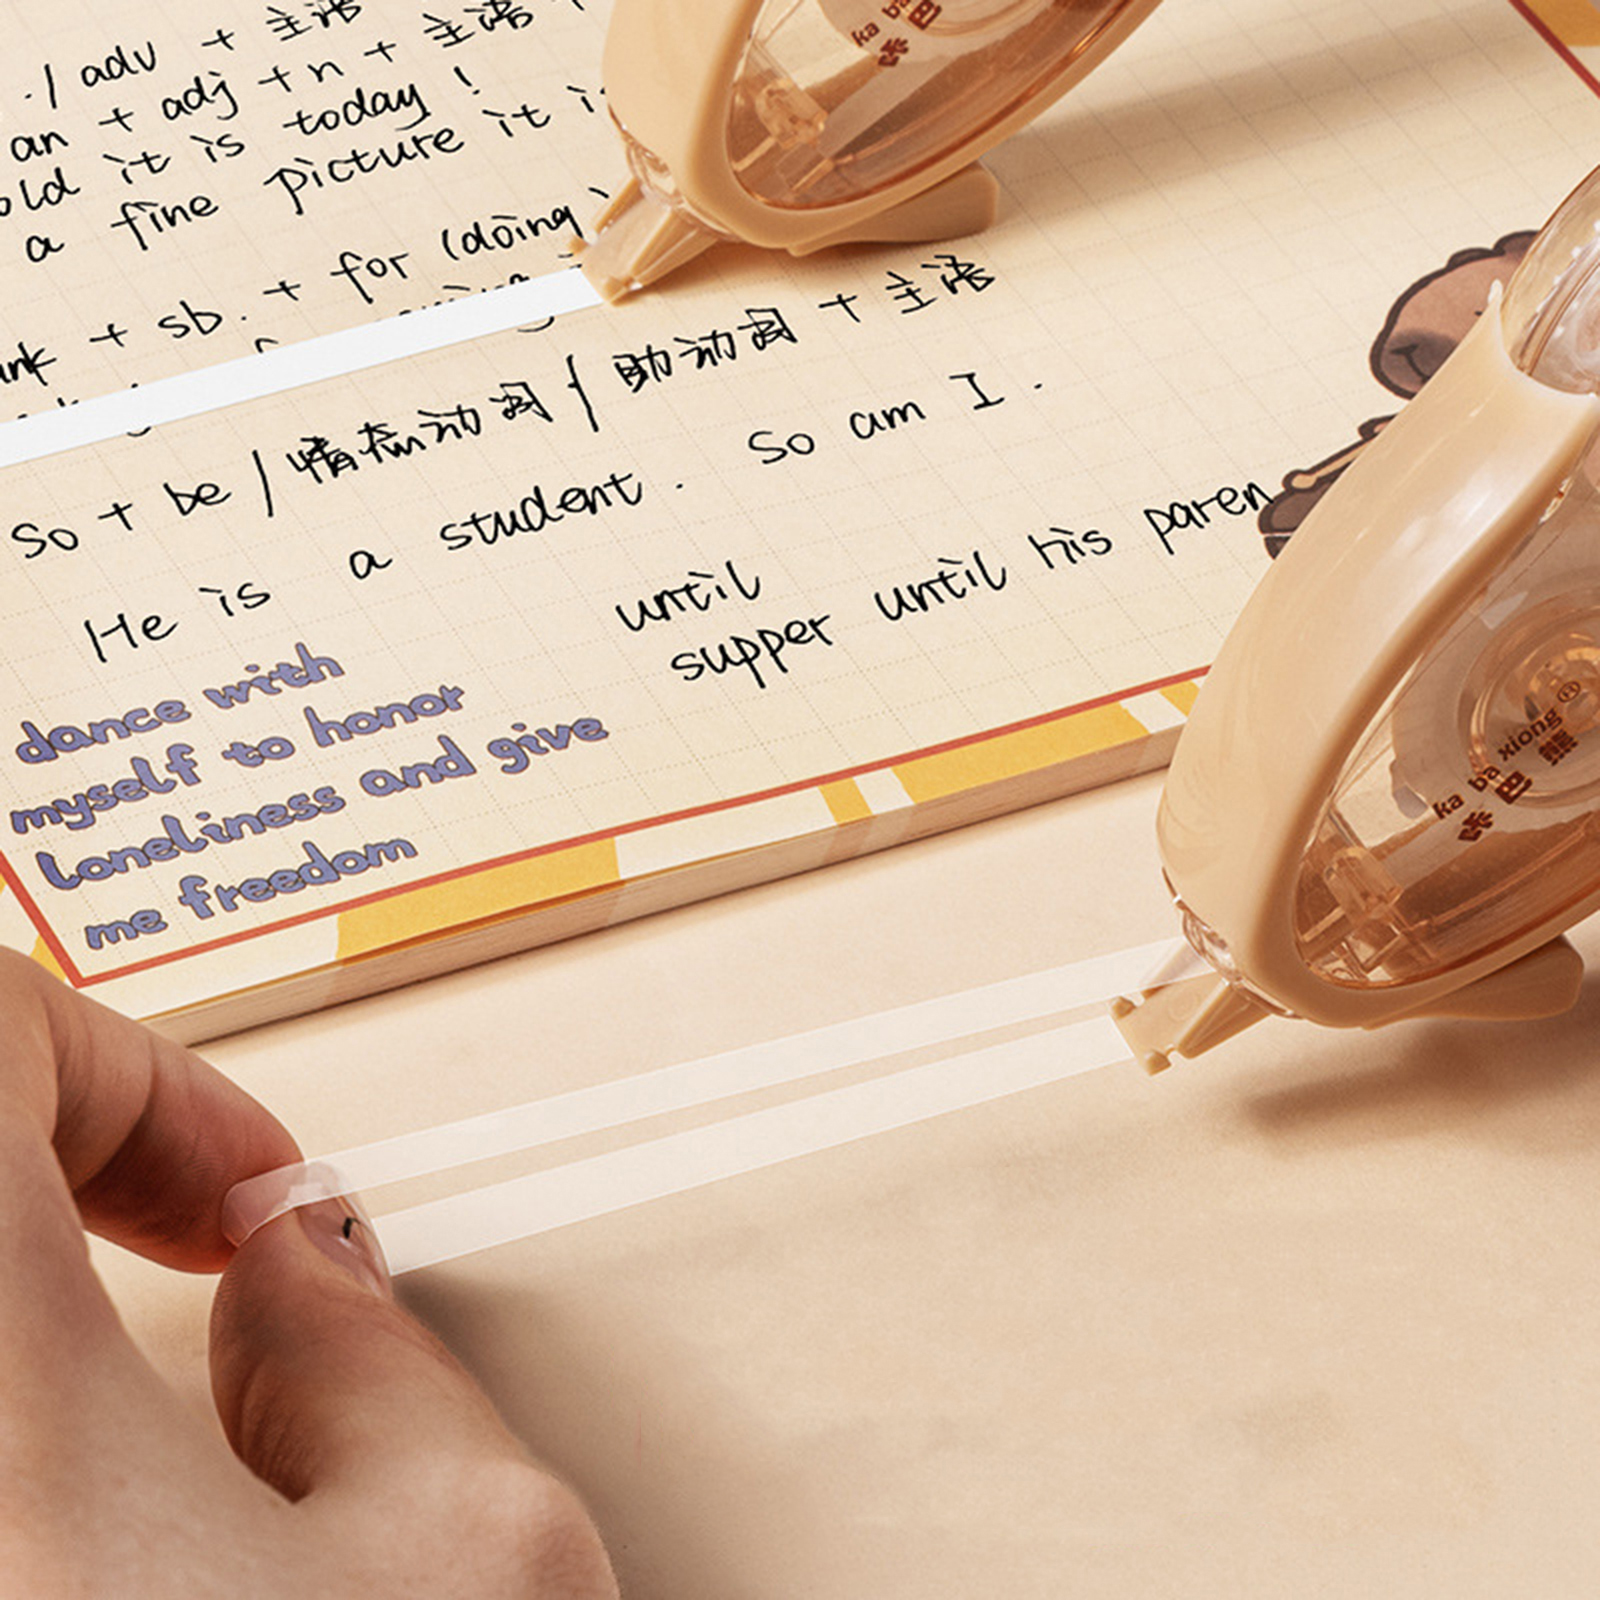 ./ adv + 主语
an + adj + n + 主语 +
old it is today !
a fine picture it is
+ sb. + for (doing)
So + be / 情态动词 / 助动词 + 主语
He is a student. So am I.
until
supper until his paren
dance with
myself to honor
loneliness and give
me freedom
ka ba
咔 巴
ka ba xiong®
咔 巴 熊